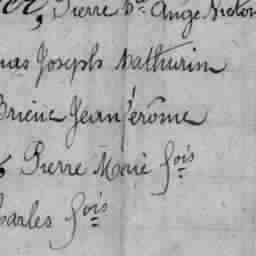 Pierre Bte Ange Victor
Joseph Mathurin
Brieuc Jean Jérôme
Pierre Marie fois
Charles fois